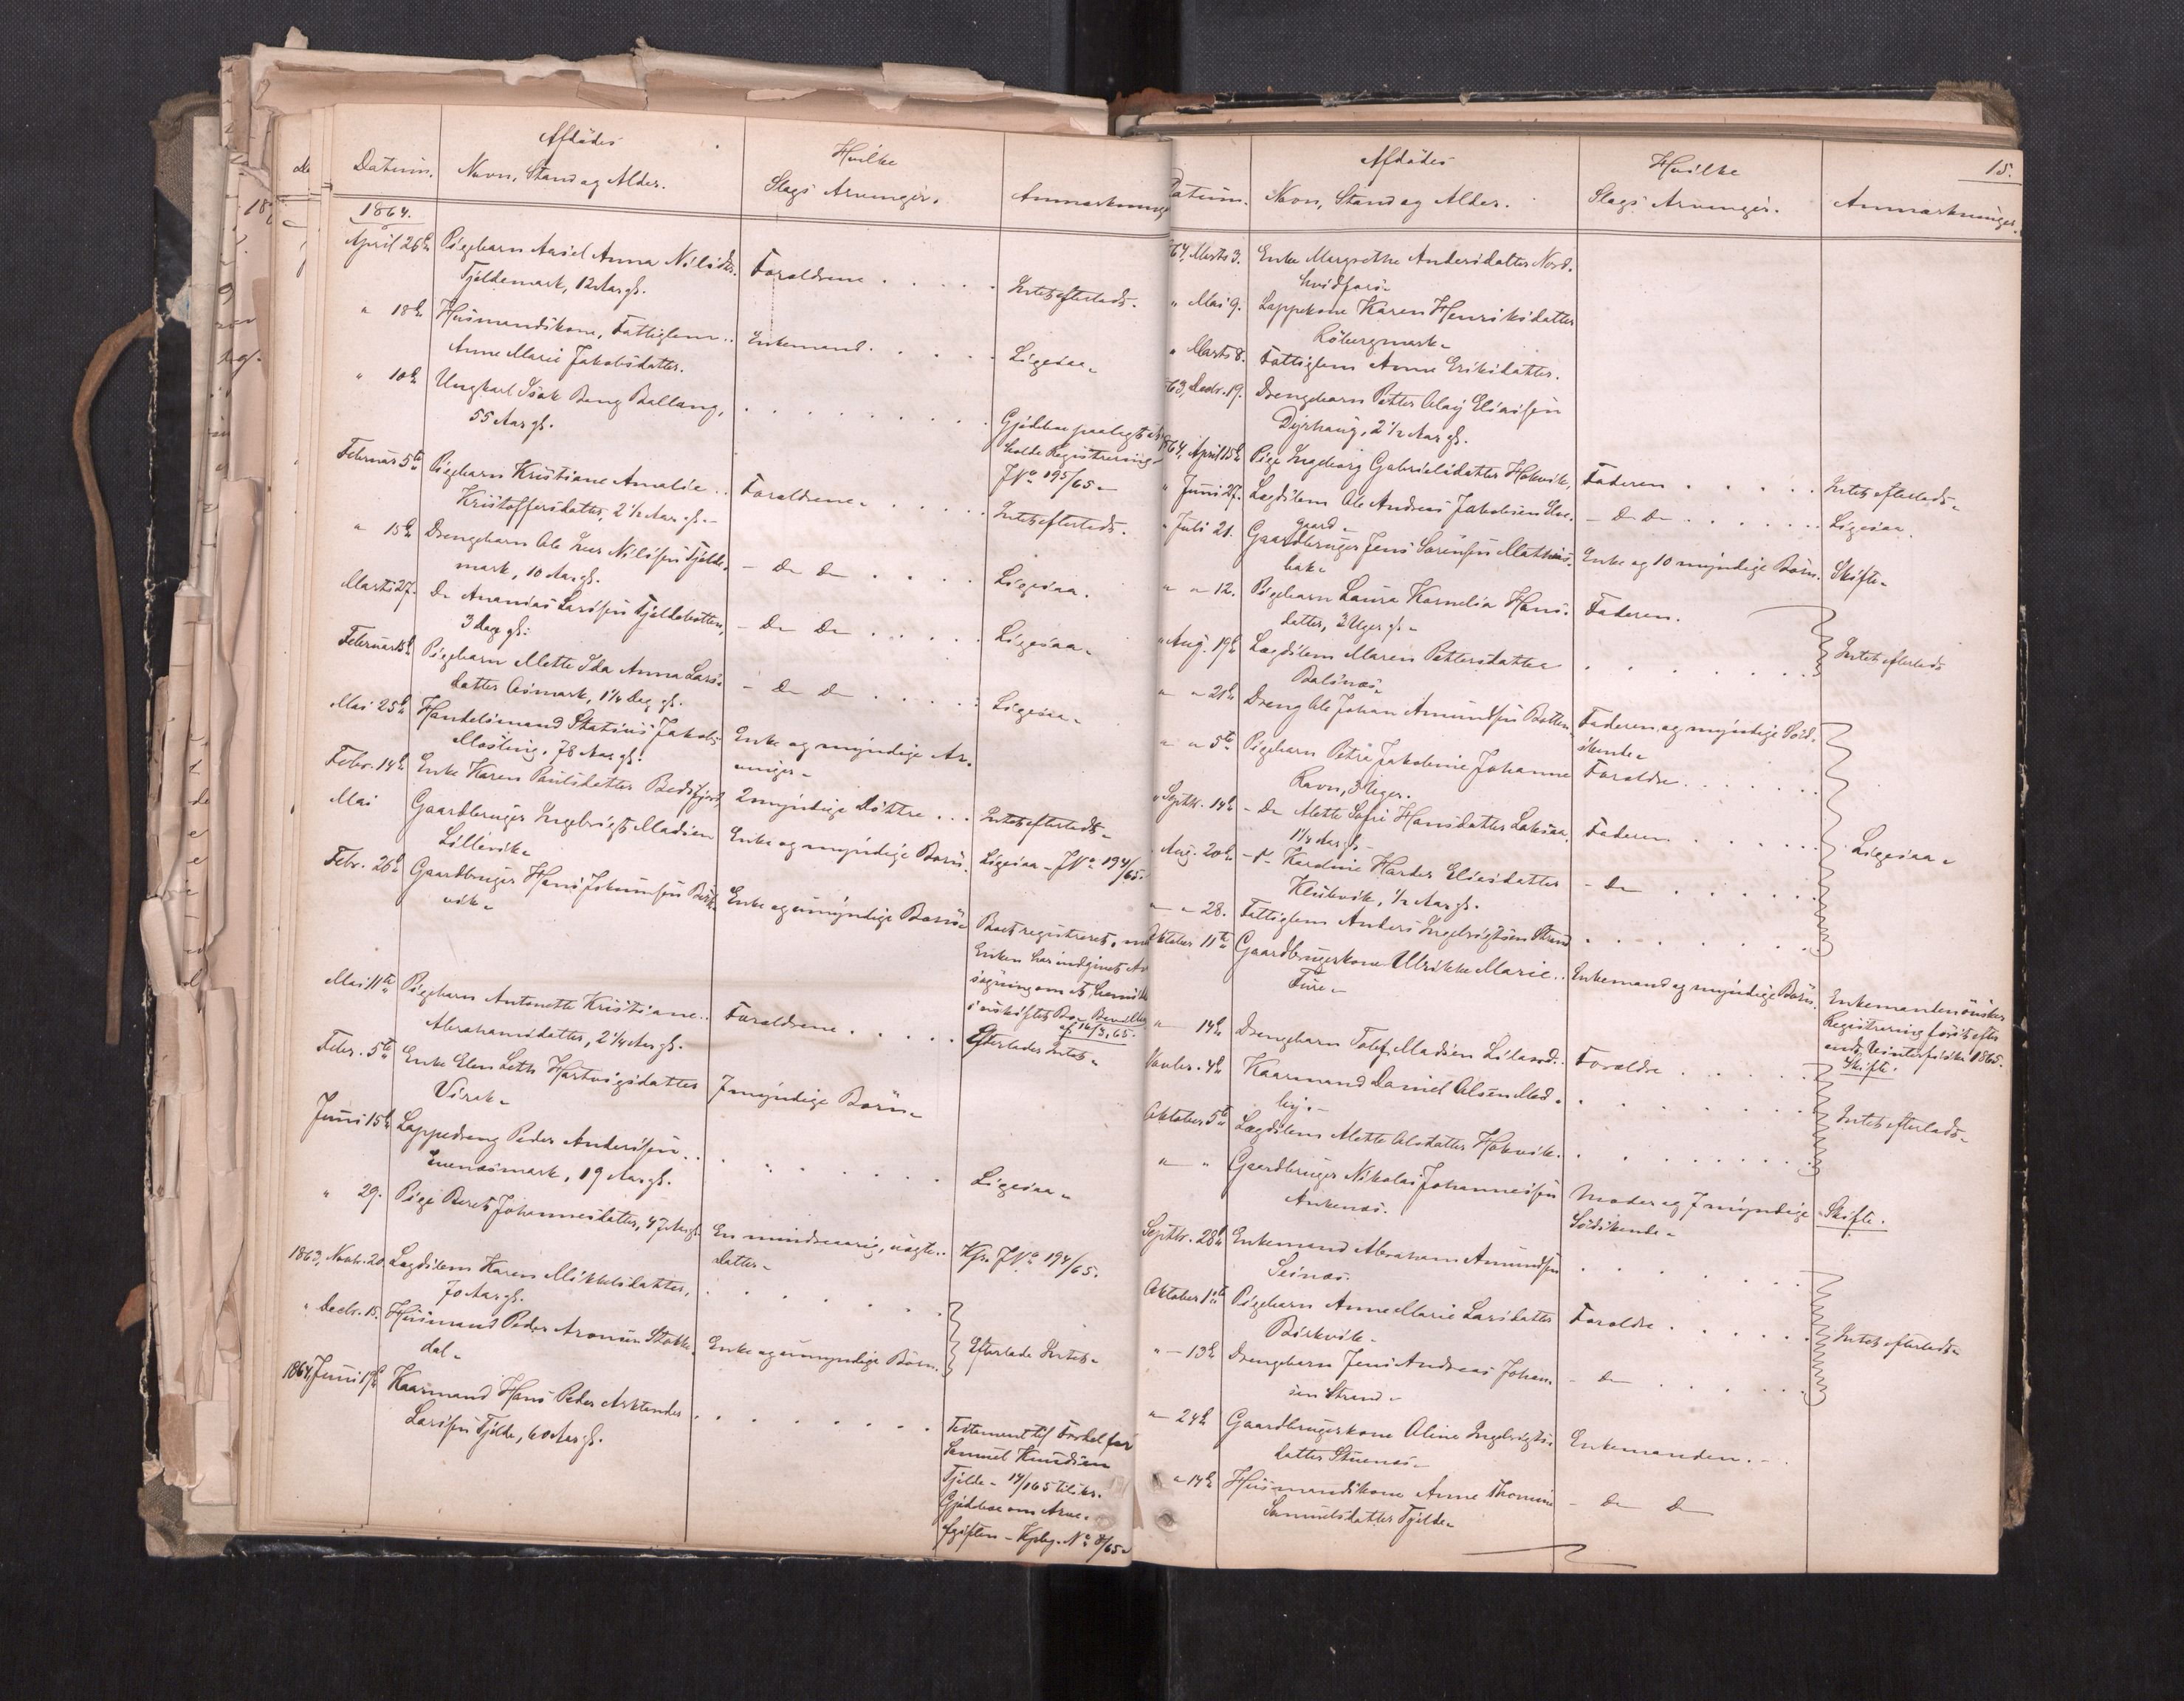 Afdødes
Datum.
Navn, Stand og Alder.
Hvilke
Slags Arvinger.
Anmærkninge
1864.
April 26de
Pigebarn Aasel Anna Nilsdtr.
Fjeldemark, 12 Aar gl.
Forældrene . . . . .
Intet efterladt.
" 18de
Husmandskone, Fattiglem . .
Anne Marie Jakobsdatter.
Enkemand . . . . .
Ligesaa
" 10de
Ungkarl Isak Beng Ballang,
55 Aar gl.
Gjeldboe paalagt at
holde Registrering
J No 195/65
Februar 5te
Pigebarn Kristiane Amalie . .
Kristoffersdatter, 2 1/2 Aar gl.
Forældrene . . . . .
Intet efterladt.
" 15de
Drengebarn Ole Luer Nilssen Fjelde-
mark, 10 Aar gl.
- Do Do . . . .
Ligesaa.
Marts 27.
Do Ananias Larssen Fjeldebotten,
3 Dage gl.
- Do Do . . . . .
Ligesaa
Februar 15de
Pigebarn Mette Ida Anna Lars-
datter Osmark, 1 1/4 Dag gl.
- Do Do . . . . .
Ligesaa
Mai 25de
Handelsmand Statius Jakob
Mosling, 78 Aar gl.
Enke og myndige Ar-
vinger
Febr. 14de
Enke Karen Paulsdatter Bedsfjord
2 myndige Döttre . . .
Intet efterladt
Mai
Gaardbruger Ingebrigt Madsen
Lillevik
Enke og myndige Børn.
Ligesaa - J No 194/65.
Febr. 26de
Gaardbruger Hans Johnsen Berk-
vik
Enke og umyndige Børn
Boet registreret, men
Enken har indgivet An-
søgning om at hensidde
i uskiftet Bo Bevilling
af 16/3, 65.
Mai 11te
Pigebarn Antonette Kristiane . .
Abrahamsdatter, 2 1/4 Aar gl.
Forældrene . . . . .
Efterlades Intet
Febr. 5te
Enke Elen Beth Hartvigsdatter
Virak
7 myndige Børn
Juni 15de
Lappedreng Peder Anderssen . .
Evenæsmark, 19 Aar gl.
Ligesaa
" 29.
Pige Beret Johannesdatter, 47 Aar gl.
En mindreaarig, uægte . .
datter
Kfr. J No 194/65.
1863, Novbr. 20.
Lægdslem Karen Mikkelsdatter,
70 Aar gl.
" Decbr. 15.
Husmand Peder Aronsen Stokke-
dal
Enke og umyndige Børn.
Efterlade Intet
1864, Juni 19de
Kaarmand Hans Peder Arktander
Larssen Fjelde, 60 Aar gl.
Testament tif Fordel for
Samuel Knudsen
Fjelde - 14/1 65 tilskr.
Gjeldboe om Arve-
afgiften - Kpbg. No 8/65
15.
Afdødes
Datum.
Navn, Stand og Alder.
Hvilke
Slags Arvinger.
Anmærkninger.
64, Marts 3.
Enke Margrethe Andersdatter Nord-
hvidfors
" Mai 9.
Lappekone Karen Henriksdatter
Röbergmark
" Marts 8.
Fattiglem Anne Eriksdatter.
63, Decbr. 19.
Drengebarn Petter Olaj Eliassen
Dyrhaug, 2 1/2 Aar gl.
1864, April 15de
Pige Ingeborg Gabrielsdatter Hokvik,
Faderen . . . . .
Intet efterladt
" Juni 27.
Lægdslem Ole Andreas Jakobsen Elve-
gaard
- Do Do . . . . . .
Ligesaa
" Juli 21.
Gaardbruger Jens Sørensen Matthis-
bak
Enke og 10 myndige Børn.
Skifte
" " 12.
Pigebarn Laura Kornelia Hans-
datter, 3 Uger gl.
Faderen.
Intet efterladt
" Aug. 19de
Lægdslem Maren Pettersdatter
Balsnæs
" " 21de
Dreng Ole Johan Amundsen Botten
Faderen og myndige Sød-
skende
" " 5te
Pigebarn Petra Jakobine Johanne
Ravn, 3 Uger.
Forældre . . . . . . .
" Septbr. 14de
- Do Mette Sofie Hansdatter Laksaa,
1 1/4 Aar gl.
Faderen . . . . .
Ligesaa
Aug. 20de
- " - Kardine Harder Eliesdatter
Klubvik, 1/2 Aar gl.
- Do . . . . . .
" " 28.
Fattiglem Anders Ingebrigtsen Strand
Oktober 11te
Gaardbrugerkone Ulrikke Marie . .
Fure
Enkemand og myndige Børn.
Enkemanden ønsker
Registrering først efter
endt Vinterfiske 1865.
Skifte.
" 14de
Drengebarn Tolef Madsen Liland . .
Forældre . . . . .
Novbr. 4de
Kaarmand Daniel Olsen Mæd-
by.
Intet efterladt
Oktober 5te
Lægdslem Mette Olsdatter Hokvik.
" "
Gaardbruger Nikolai Johannessen
Ankenæs.
Moder og 7 myndige
Södskende
Skifte.
Septbr. 28de
Enkemand Abraham Amundsen
Seinæs.
Oktober 1ste
Pigebarn Anne Marie Larsdatter
Birkvik
Forældre . . . . . .
Intet efterladt
" - 13de
Drengebarn Jens Andreas Johan-
sen Strand
- Do . . . . . .
" 24de
Gaardbrugerkone Oline Ingebrigts-
datter Stuenæs
Enkemanden . .
" 14de
Husmandskone Anne Thomine
Samuelsdatter Fjelde
- Do Do